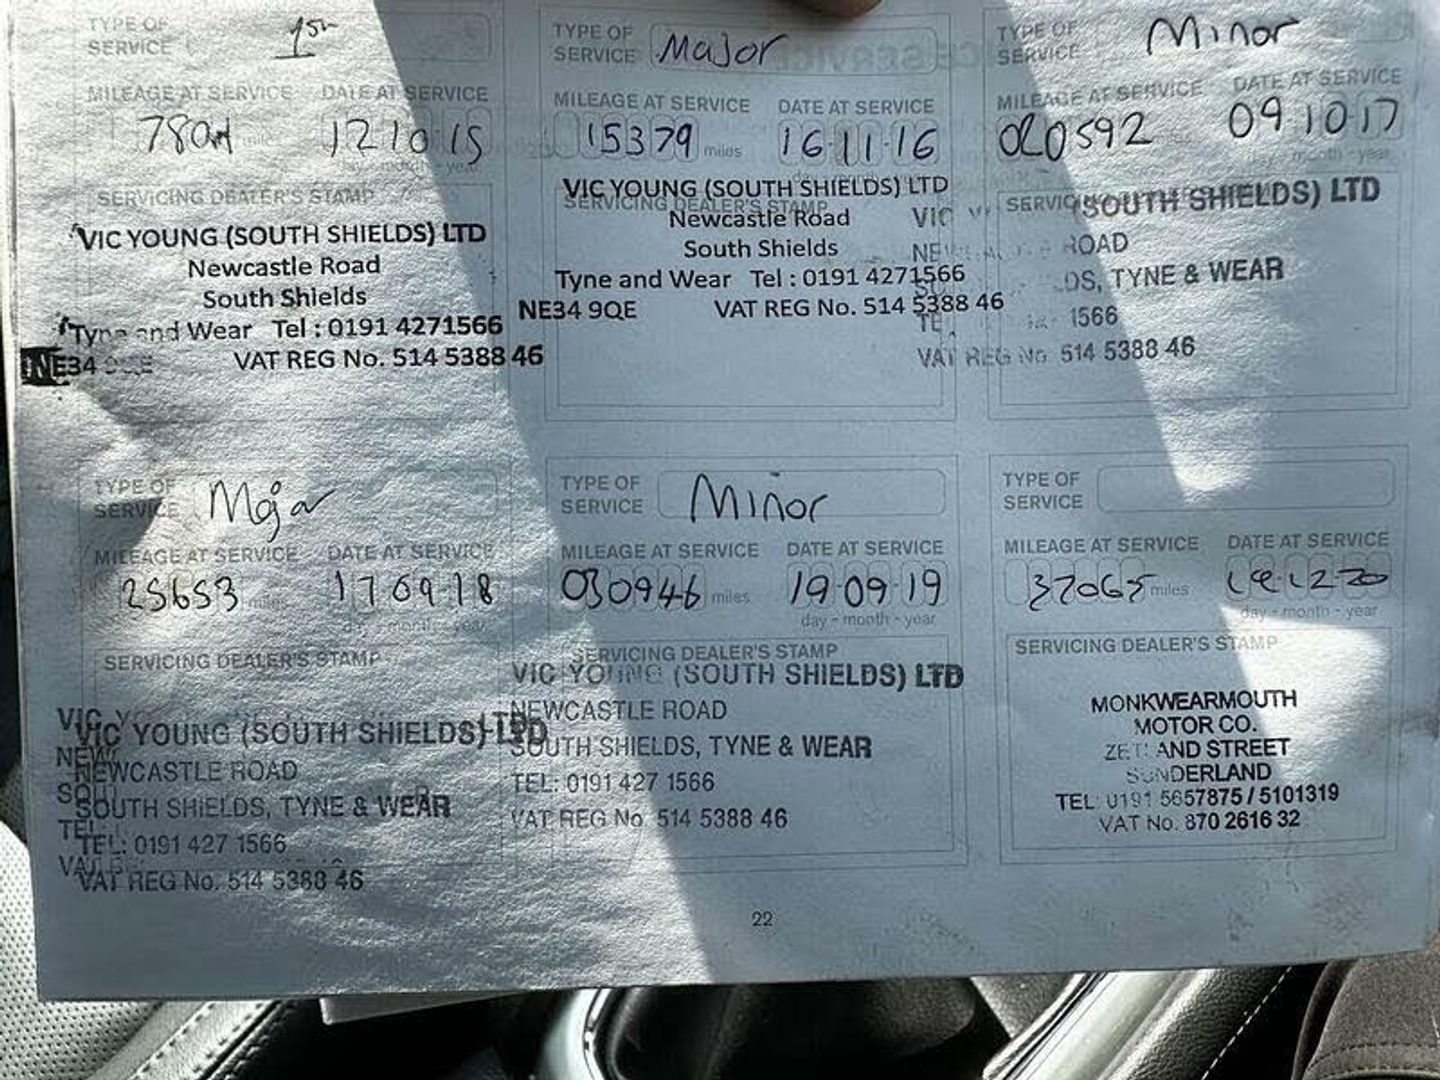 TYPE OF
SERVICE 1st
MILEAGE AT SERVICE DATE AT SERVICE
miles 12 10 15
day - month - year
SERVICING DEALER'S STAMP
VIC YOUNG (SOUTH SHIELDS) LTD
Newcastle Road
South Shields
Tyne and Wear Tel : 0191 4271566
NE34
VAT REG No. 514 5388 46
TYPE OF
SERVICE Major
MILEAGE AT SERVICE DATE AT SERVICE
15379 miles 16-11-16
day - month - year
SERVICING DEALER'S STAMP
VIC YOUNG (SOUTH SHIELDS) LTD
Newcastle Road
South Shields
Tyne and Wear Tel : 0191 4271566
NE34 9QE VAT REG No. 514 5388 46
TYPE OF
SERVICE Minor
MILEAGE AT SERVICE DATE AT SERVICE
020592 09 10 17
day - month - year
VIC (SOUTH SHIELDS) LTD
ROAD
TYNE & WEAR
1566
VAT REG No. 514 5388 46
TYPE OF
SERVICE Major
MILEAGE AT SERVICE DATE AT SERVICE
25653 miles 17 09 18
day - month - year
SERVICING DEALER'S STAMP
VIC YOUNG (SOUTH SHIELDS) LTD
NEWCASTLE ROAD
SOUTH SHIELDS, TYNE & WEAR
TEL: 0191 427 1566
VAT REG No. 514 5388 46
TYPE OF
SERVICE Minor
MILEAGE AT SERVICE DATE AT SERVICE
030946 miles 19-09-19
day - month - year
SERVICING DEALER'S STAMP
VIC YOUNG (SOUTH SHIELDS) LTD
NEWCASTLE ROAD
SOUTH SHIELDS, TYNE & WEAR
TEL: 0191 427 1566
VAT REG No. 514 5388 46
TYPE OF
SERVICE
MILEAGE AT SERVICE DATE AT SERVICE
37065 miles
day - month - year
SERVICING DEALER'S STAMP
MONKWEARMOUTH
MOTOR CO.
STREET
SUNDERLAND
TEL: 0191 5657875 / 5101319
VAT No. 870 2616 32
22